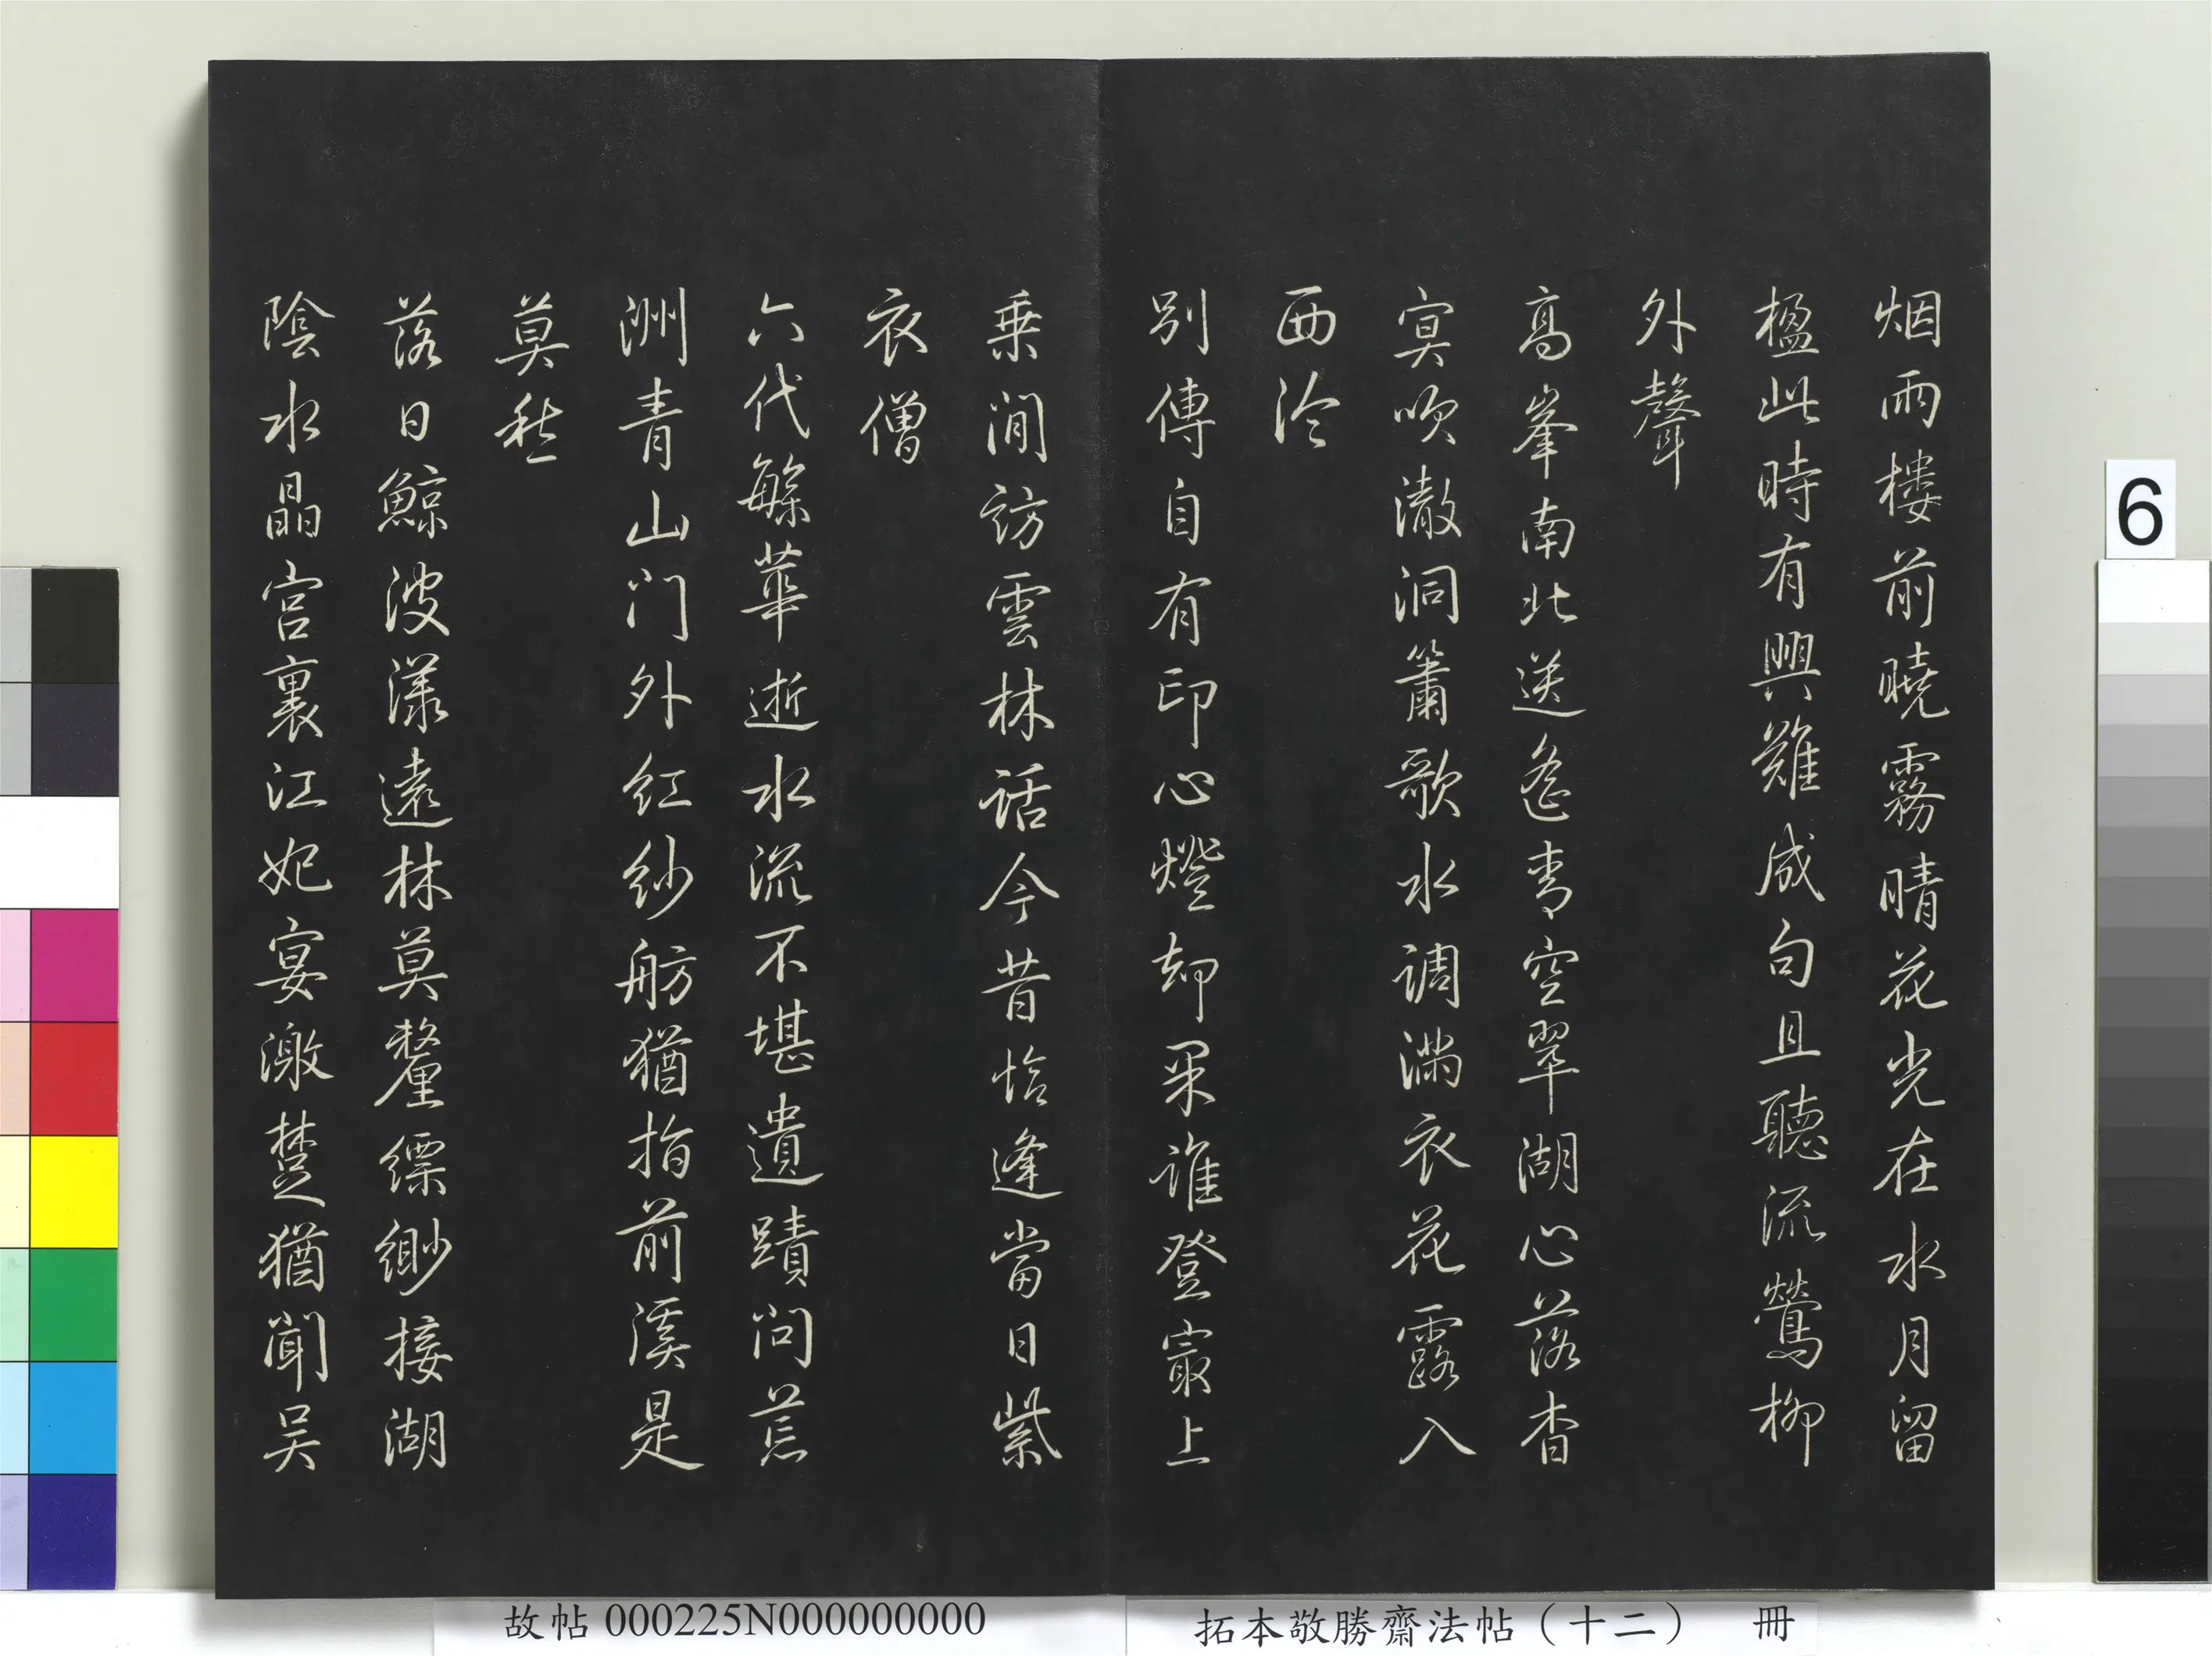 烟雨樓前曉霧晴花光在水月留
楹此時有興難成句且聽流鶯柳
外聲
高峯南北送遙青空翠湖心落杳
冥吹澈洞簫歌水調滿衣花露入
西泠
別傳自有印心燈却果誰登最上
乘閒訪雲林話今昔恰逢當日紫
衣僧
六代繁華逝水流不堪遺蹟問荒
洲青山門外紅紗舫猶指前溪是
莫愁
落日鯨波漾遠林莫釐縹緲接湖
陰水晶宮裏江妃宴激楚猶聞吳
6
拓本敬勝齋法帖（十二） 冊
故帖000225N000000000